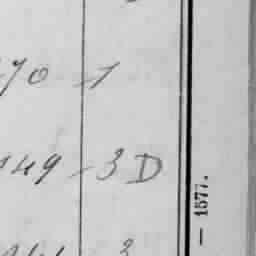 70 - 1
149 - 3 D
3
— 1577.